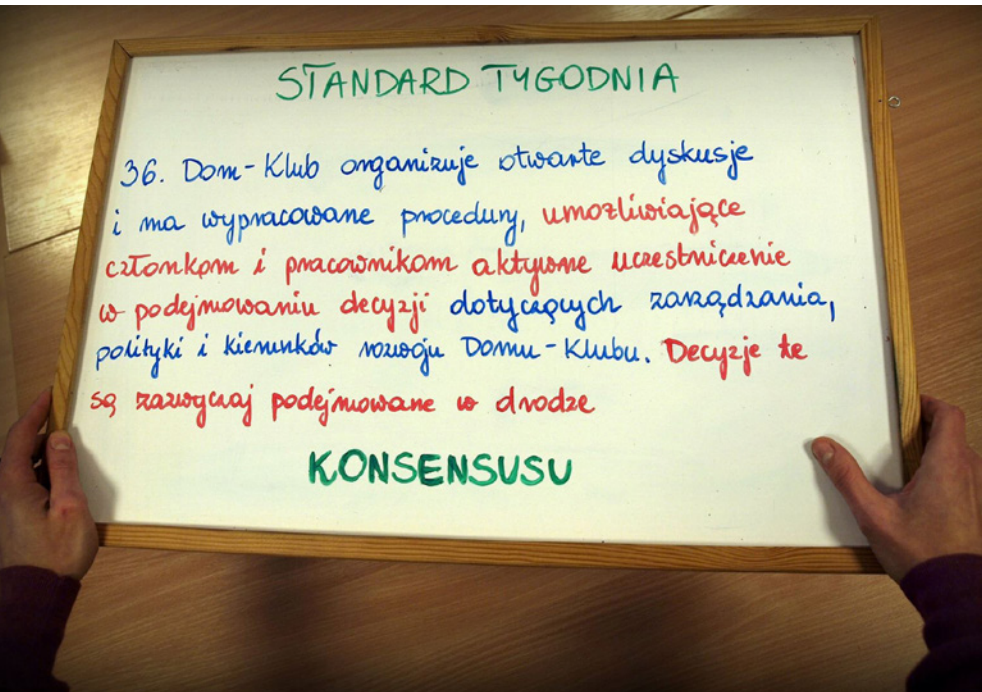 STANDARD TYGODNIA
36. Dom-Klub organizuje otwarte dyskusje
i ma wypracowane procedury, umożliwiające
członkom i pracownikom aktywne uczestniczenie
w podejmowaniu decyzji dotyczących zarządzania,
polityki i kierunków rozwoju Domu-Klubu. Decyzje te
są zazwyczaj podejmowane w drodze
KONSENSUSU